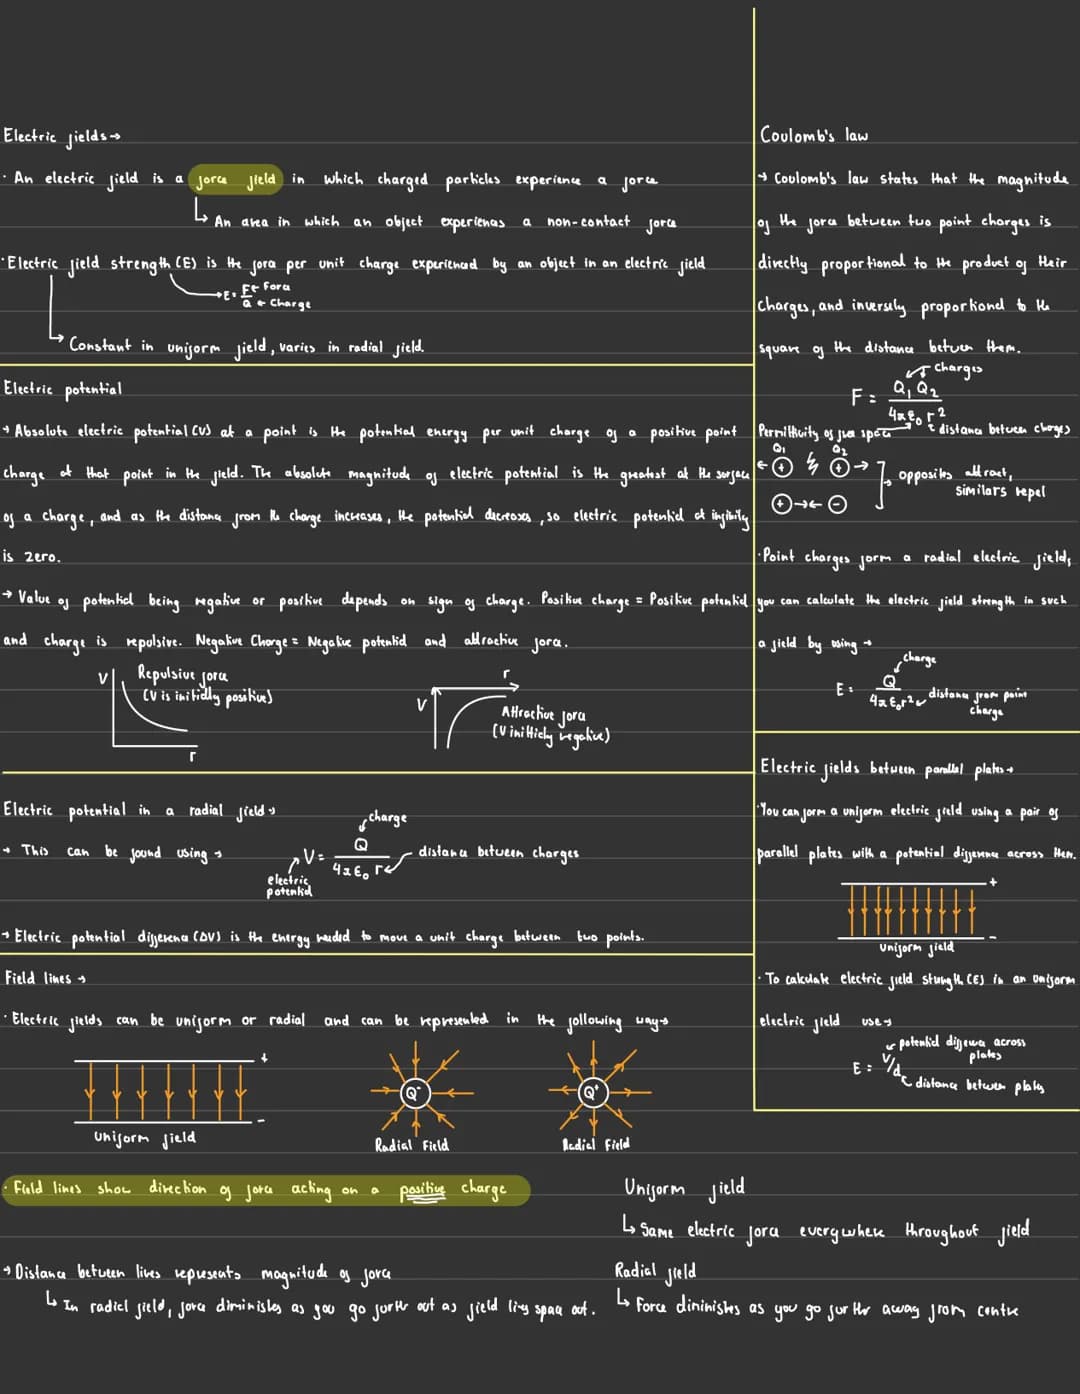 Electric fields →
· An electric field is a force field in which charged particles experience a force
↳ An area in which an object experiences a non-contact force
· Electric field strength (E) is the force per unit charge experienced by an object in an electric field
→ E = F/Q ← Force ← Charge
↳ Constant in uniform field, varies in radial field.
Electric potential
→ Absolute electric potential (V) at a point is the potential energy per unit charge of a positive point
charge at that point in the field. The absolute magnitude of electric potential is the greatest at the surface
of a charge, and as the distance from the charge increases, the potential decreases, so electric potential at infinity
is zero.
→ Value of potential being negative or positive depends on sign of charge. Positive charge = Positive potential
and charge is repulsive. Negative Charge = Negative potential and attractive force.
V
Repulsive force
(V is initially positive)
r
r
V
Attractive force
(V initially negative)
Electric potential in a radial field →
→ This can be found using →
electric potential
V = Q / 4πε₀ r
charge
distance between charges
→ Electric potential difference (ΔV) is the energy needed to move a unit charge between two points.
Field lines →
· Electric fields can be uniform or radial and can be represented in the following way →
+
-
Uniform field
Q⁻
Radial Field
Q⁺
Radial Field
· Field lines show direction of force acting on a positive charge
→ Distance between lines represents magnitude of force
↳ In radial field, force diminishes as you go further out as field lines space out.
Uniform field
↳ Same electric force everywhere throughout field
Radial field
↳ Force diminishes as you go further away from centre
Coulomb's law
→ Coulomb's law states that the magnitude
of the force between two point charges is
directly proportional to the product of their
charges, and inversely proportional to the
square of the distance between them.
charges
F = Q₁ Q₂ / 4πε₀ r²
Permittivity of free space
distance between charges
Q₁ Q₂
← + + →
+ → ← -
opposites attract,
similars repel
· Point charges form a radial electric field,
you can calculate the electric field strength in such
a field by using →
charge
E = Q / 4πε₀r²
distance from point
charge
Electric fields between parallel plates →
· You can form a uniform electric field using a pair of
parallel plates with a potential difference across them.
+
-
Uniform field
· To calculate electric field strength (E) in an uniform
electric field use →
potential difference across
plates
E = V/d
distance between plates